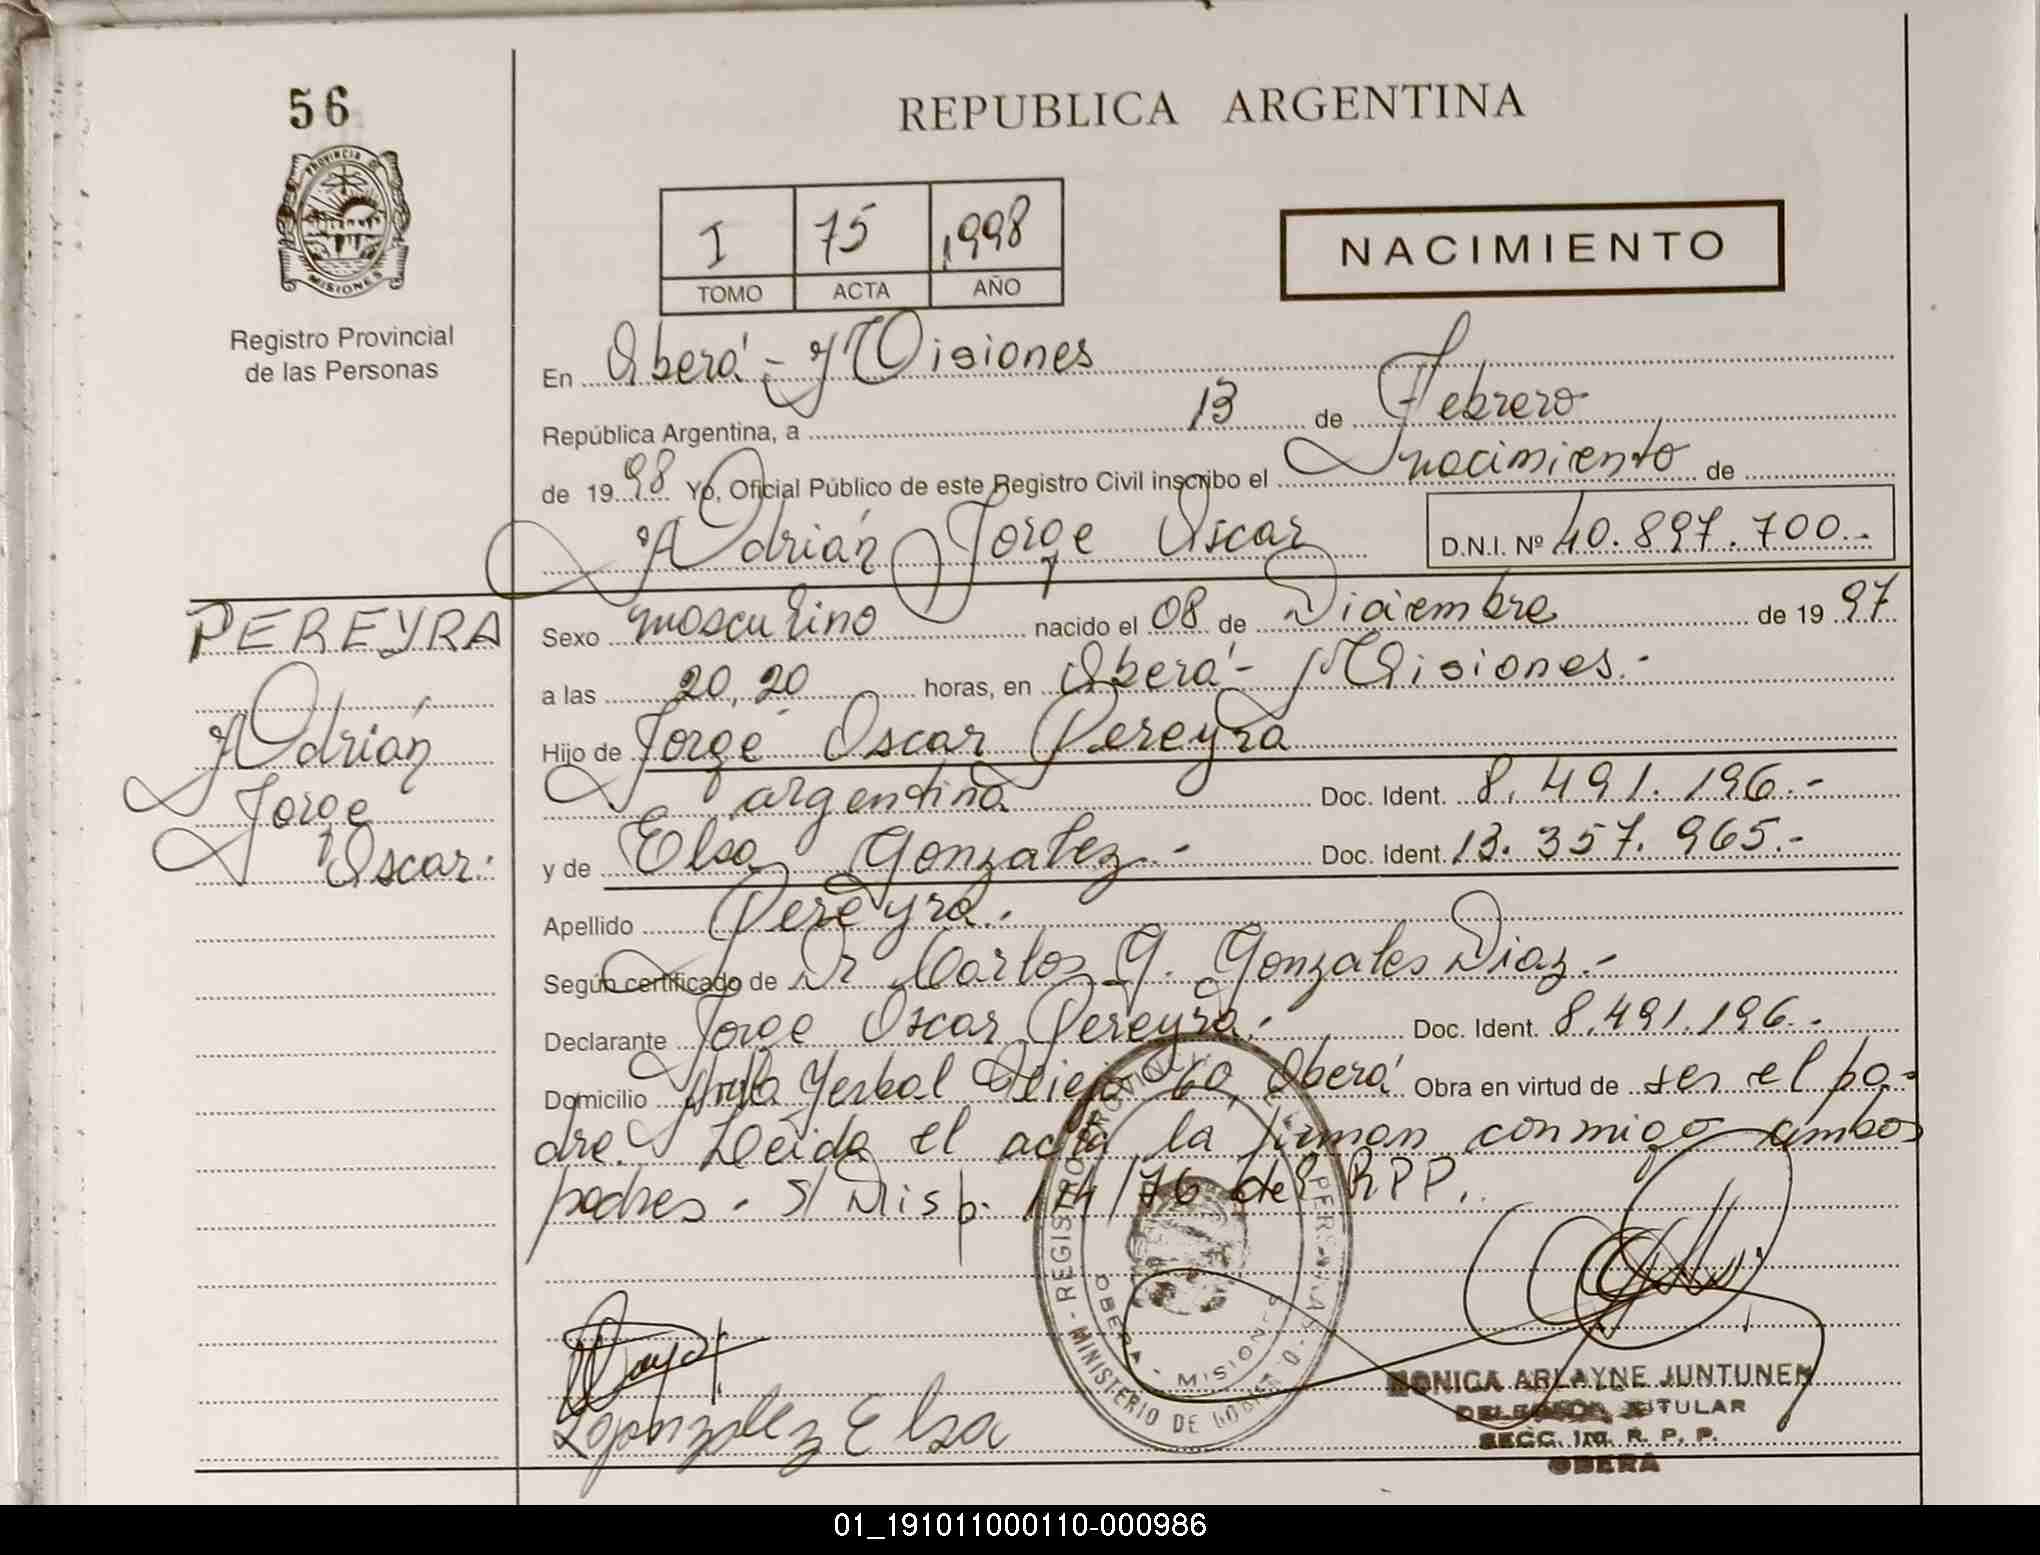 56
PROVINCIA D
MISIONES
Registro Provincial
de las Personas
REPUBLICA ARGENTINA
I 75 1998
TOMO ACTA AÑO
NACIMIENTO
En Oberá - Misiones
República Argentina, a 13 de Febrero
de 19 98 Yo, Oficial Público de este Registro Civil inscribo el nacimiento de
Adrián Jorge Oscar D.N.I. Nº 40.897.700.-
PEREYRA
Adrián
Jorge
Oscar.
Sexo masculino nacido el 08 de Diciembre de 19 97
a las 20,20 horas, en Oberá - Misiones.-
Hijo de Jorge Oscar Pereyra
argentina Doc. Ident. 8.491.196.-
y de Elsa Gonzalez.- Doc. Ident. 13.357.965.-
Apellido Pereyra.-
Según certificado de Dr Carlos G. Gonzales Diaz.-
Declarante Jorge Oscar Pereyra.- Doc. Ident. 8.491.196.-
Domicilio Yerbal Viejo 60, Oberá Obra en virtud de ser el pa-
dre. Leida el acta la firman conmigo ambos
padres. S/ Disp. 114/76 del RPP.
REGISTRO PROVINCIAL
MINISTERIO DE
OBERA - MISIONES
Gonzalez Elsa
MONICA ARLAYNE JUNTUNEN
TITULAR
SECC. 1ra. R. P. P.
OBERA
01_191011000110-000986